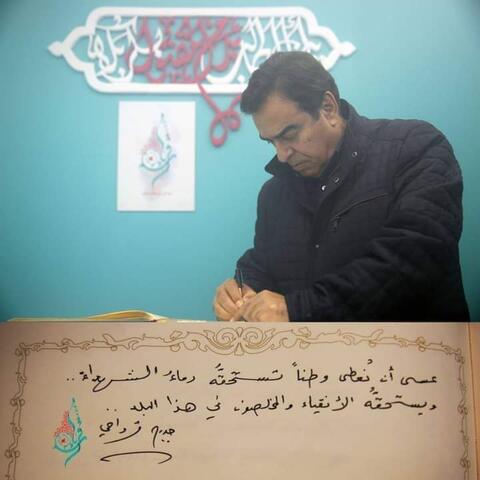 عسى أن نُعطى وطناً تستحقّهُ دماءُ الشهداء ..
ويستحقّهُ الأنقياء والمخلصون في هذا البلد ..
جورج قرداحي